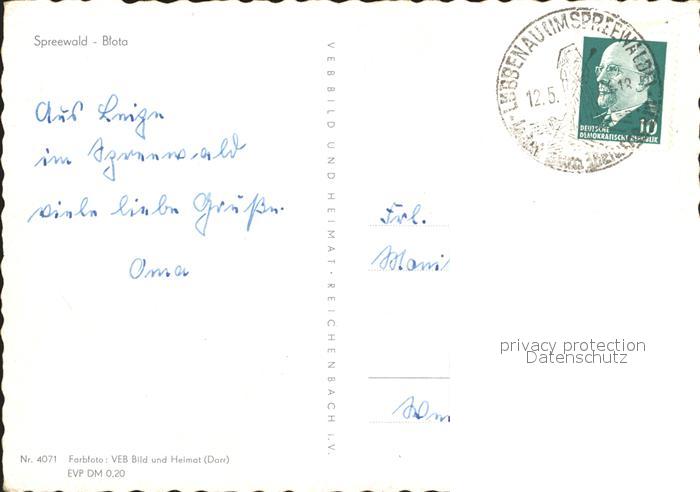 Spreewald - Błota
Aus Leipe
im Spreewald
viele liebe Grüße.
Oma
VEB BILD UND HEIMAT · REICHENBACH i. V.
LÜBBENAU (IM SPREEWALD)
12.5.
DEUTSCHE
DEMOKRATISCHE REPUBLIK
10
Frl.
Moni
privacy protection
Datenschutz
Nr. 4071 Farbfoto: VEB Bild und Heimat (Darr)
EVP DM 0,20